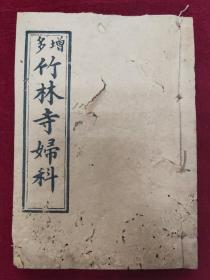 增多
竹林寺婦科